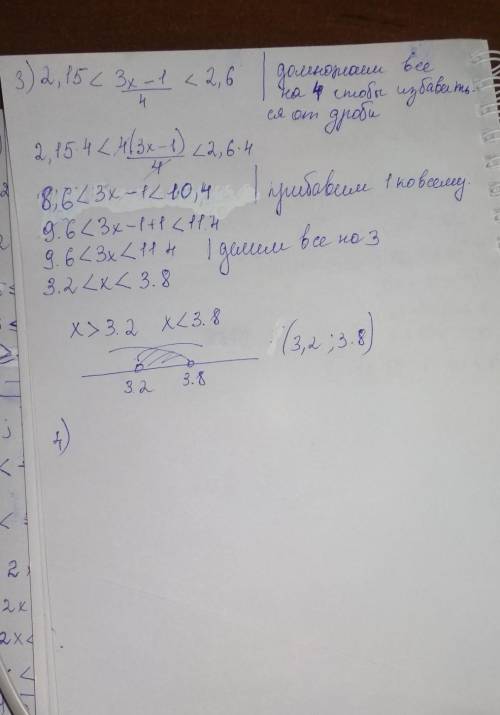 3) 2,15 < (3x-1)/4 < 2,6 | домножаем все
на 4 чтобы избавить-
ся от дроби
2,15·4 < 4(3x-1)/4 < 2,6·4
8,6 < 3x-1 < 10,4 | прибавим 1 ко всему.
9.6 < 3x-1+1 < 11.4
9.6 < 3x < 11.4 | делим все на 3
3.2 < x < 3.8
x > 3.2 x < 3.8
(3,2 ; 3.8)
3.2 3.8
4)